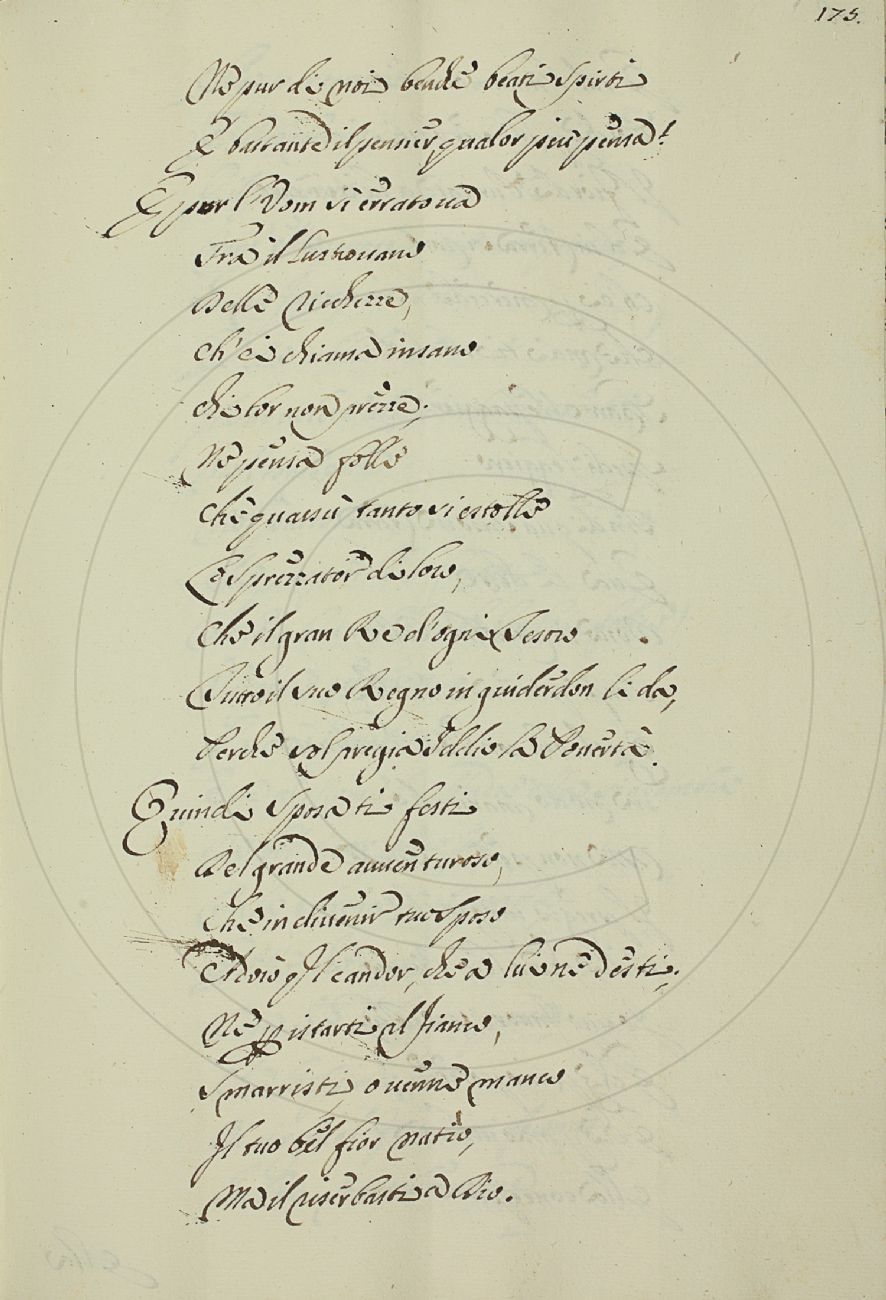 175.
Ne pur di noi benche beati spirti
E bastante il pensier, qualor piu pensa!
E pur l'Vom si errato uà
Trà il lustro uano
Delle ricchezze,
Ch'ei chiama insano
Chi lor non prezze;
Ne pensa folle
Che quassù tanto si estolle
Lo sprezzator di loro,
Che il gran Re d'ogni Tesoro
Tutto il suo Regno in guiderdon li da,
Perche sol pregia Iddio la Pouertà.
Quindi sposa ti festi
Del grande auuenturoso,
Che in diuenir tuo sposo
il candor, che a lui ne desti;
Ne p istarti al fianco,
Smarristi, o uenne manco
Il tuo bel fior natio,
Ma il riserbasti a Dio.